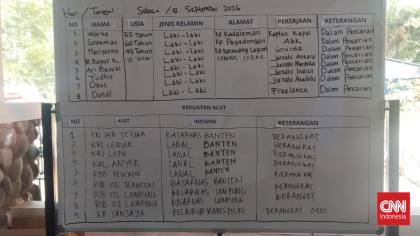 Hari / Tanggal : Sabtu / 8 September 2026
NO NAMA USIA JENIS KELAMIN ALAMAT PEKERJAAN KETERANGAN
1 Warta 55 Tahun Laki - Laki Kp Kadaleman Kapten Kapal Dalam Pencarian
2 Surakman 60 Tahun Laki - Laki Kp Pagedongan ABK Dalam Pencarian
3 Hariyono 49 Tahun Laki - Laki Guide Dalam Pencarian
4 M. Bagus Laki - Laki Jurnalis Antara Dalam Pencarian
5 Ari Basuki Laki - Laki Jurnalis Merdeka Dalam Pencarian
6 Yudhis Laki - Laki Jurnalis Dalam Pencarian
7 Laki - Laki Jurnalis Dalam Pencarian
8 Donal Laki - Laki Freelance Dalam Pencarian
KEKUATAN ALUT
NO ALUT INSTANSI KETERANGAN
1 KN SAR TETUKA BASARNAS BANTEN BERANGKAT
2 KRI LEUSER LANAL BANTEN BERANGKAT
3 KRI LEPU LANAL BANTEN BERANGKAT
4 KAL ANYER LANAL BANTEN BERANGKAT
5 RBB LANAL BANTEN BERANGKAT
6 RIB 02 BANTEN BASARNAS BANTEN BERANGKAT
7 RIB 02 LAMPUNG BASARNAS LAMPUNG BERANGKAT
8 RIB 03 LAMPUNG BASARNAS LAMPUNG BERANGKAT
9 KP SANJAYA POLAIRUD MABES POLRI BERANGKAT 0900
CNN
Indonesia